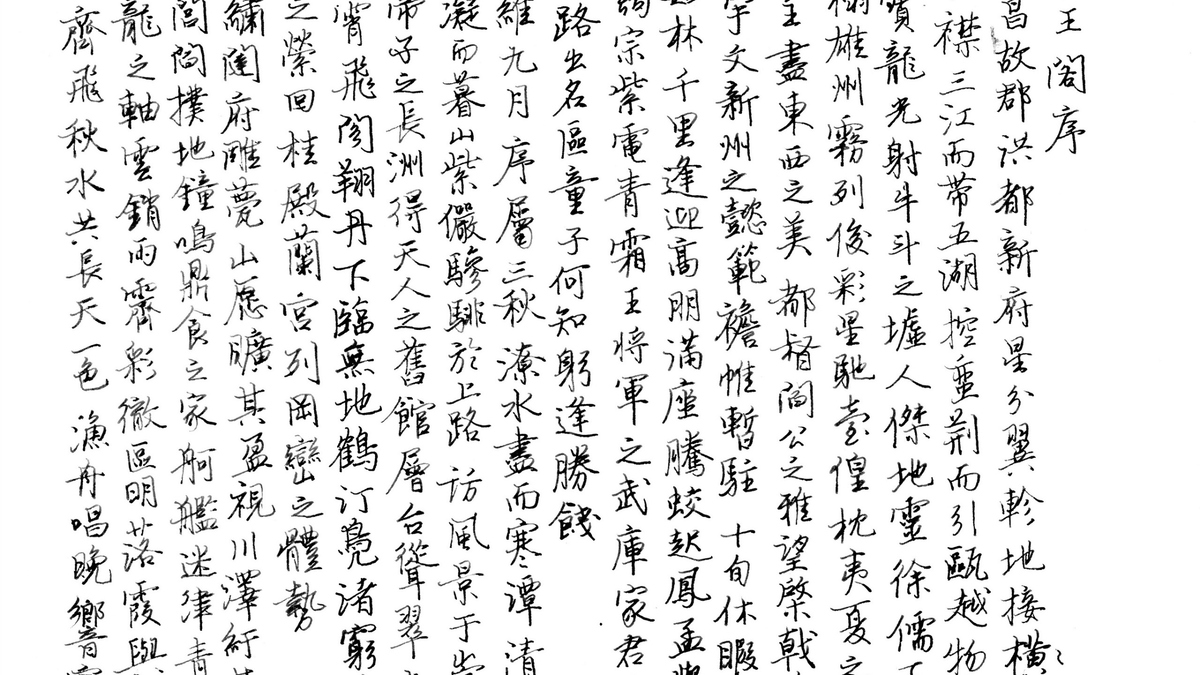 王閣序
昌故郡洪都新府星分翼軫地接橫
襟三江而帶五湖控蛮荊而引甌越物
寶龍光射牛斗之墟人傑地靈徐儒
榻雄州霧列俊彩星馳臺隍枕夷夏之
主盡東西之美都督閻公之雅望棨戟
宇文新州之懿範襜帷暫駐十旬休暇
林千里逢迎高朋滿座騰蛟起鳳孟
宗紫電青霜王將軍之武庫家君
路出名區童子何知躬逢勝餞
維九月序屬三秋潦水盡而寒潭清
凝而暮山紫儼驂騑於上路訪風景于
帝子之長洲得天人之舊館層台聳翠
霄飛閣翔丹下臨無地鶴汀鳧渚窮
之縈回桂殿蘭宮列岡巒之體勢
繡闥府雕甍山原曠其盈視川澤紆
閭閻撲地鐘鳴鼎食之家舸艦迷津青
龍之軸雲銷雨霽彩徹區明落霞與
齊飛秋水共長天一色漁舟唱晚響